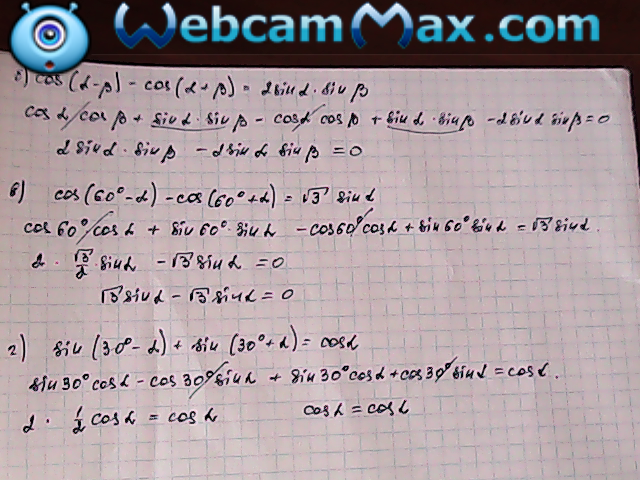 WebcamMax.com
б) cos(α-β) - cos(α+β) = 2sinα·sinβ
cosα cosβ + sinα·sinβ - cosα cosβ + sinα·sinβ - 2sinα sinβ = 0
2sinα·sinβ - 2sinα sinβ = 0
в) cos(60°-α) - cos(60°+α) = √3 sinα
cos60° cosα + sin60°·sinα - cos60° cosα + sin60° sinα = √3 sinα.
2 · √3/2 · sinα - √3 sinα = 0
√3 sinα - √3 sinα = 0
г) sin(30°-α) + sin(30°+α) = cosα
sin30° cosα - cos30° sinα + sin30° cosα + cos30° sinα = cosα.
2 · 1/2 cosα = cosα cosα = cosα